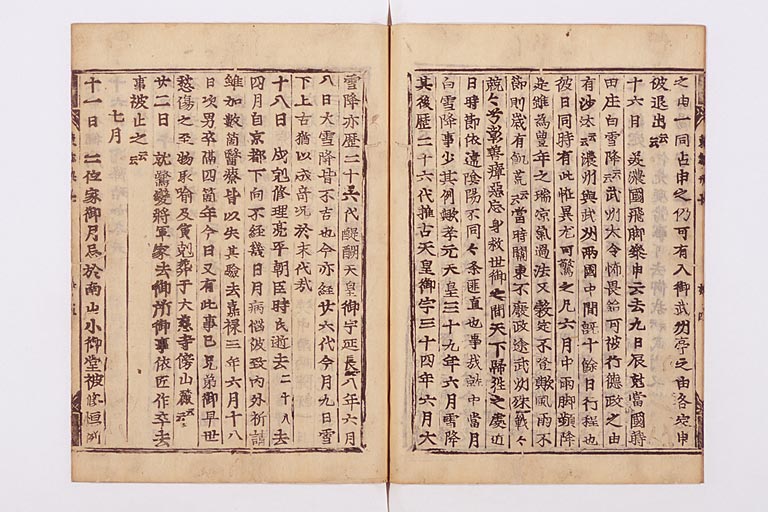 之由一同占申之仍可有入御武州亭之由各定申
被退出云云
十六日 美濃國飛脚參申云去九日辰尅當國蒔
田庄白雪降云云武州太令怖畏給可被行德政之由
有沙汰云云濃州與武州兩國中間既十餘日行程也
彼日同時有此恠異尤可驚之凡六月中雨脚頻降
是雖爲豊年之瑞凉氣過法又穀定不登歟風雨不
節則歳有飢荒云云當時關東不廢政途武州殊戰々
兢々兮彰善癉惡忘身救世御之間天下歸往之處近
日時節依違陰陽不同々条匪直也事哉就中當月
白雪降事少其例歟孝元天皇三十九年六月雪降
其後歴二十六代推古天皇御宇三十四年六月大
雪降亦歴二十六代醍醐天皇御宇延長八年六月
八日大雪降皆不吉也今亦經廿六代今月九日雪
下上古猶以成奇况於末代哉
十八日 戌尅修理亮平朝臣時氏逝去二十八去
四月自京都下向不經幾日月病惱被致内外祈請
雖加數箇醫療皆以失其驗去嘉祿三年六月十八
日次男卒隔四箇年今日又有此事已兄弟御早世
愁傷之至物取喩及寅尅葬于大慈寺傍山麓云云
廿二日 午 鷲變將軍家去御所御事依匠作卒去
事被止之云云
七月
十一日 二位家御月忌於南山小御堂被修恒例